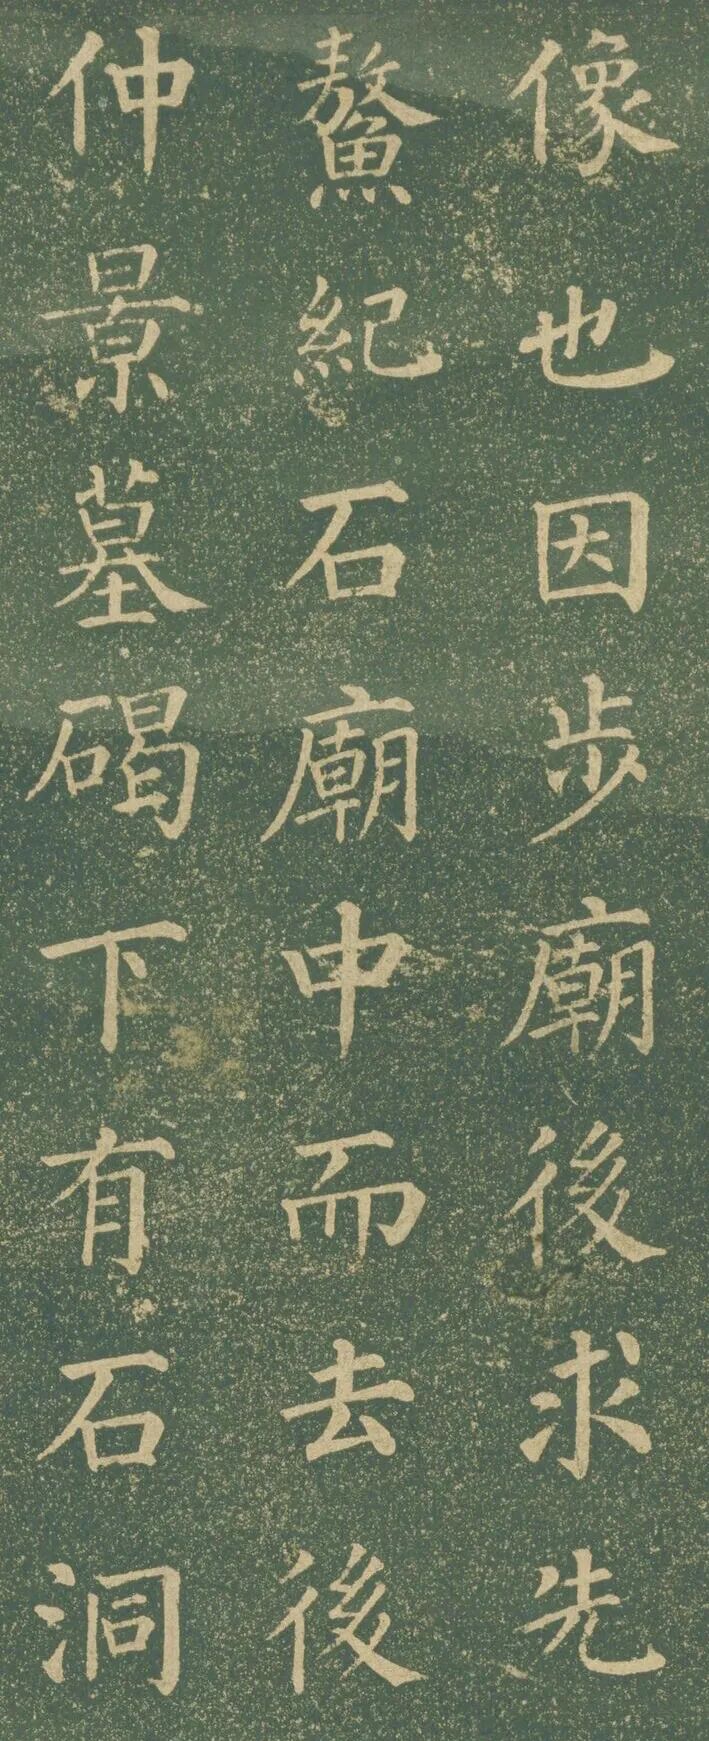 像也因步廟後求先
鰲紀石廟中而去後
仲景墓碣下有石洞